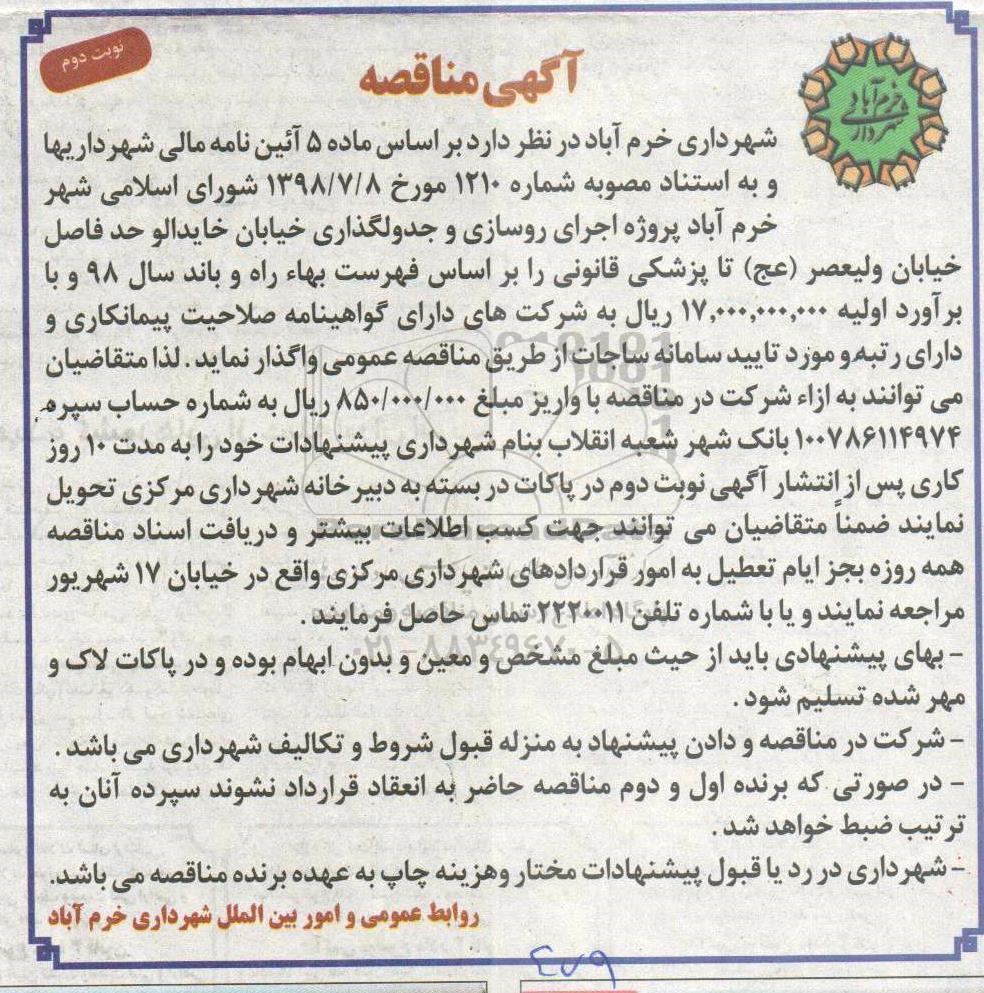 نوبت دوم
آگهی مناقصه
خرم آباد
شهرداری
شهرداری خرم آباد در نظر دارد بر اساس ماده ۵ آئین نامه مالی شهرداریها
و به استناد مصوبه شماره ۱۲۱۰ مورخ ۱۳۹۸/۷/۸ شورای اسلامی شهر
خرم آباد پروژه اجرای روسازی و جدولگذاری خیابان خایدالو حد فاصل
خیابان ولیعصر (عج) تا پزشکی قانونی را بر اساس فهرست بهاء راه و باند سال ۹۸ و با
برآورد اولیه ۱۷,۰۰۰,۰۰۰,۰۰۰ ریال به شرکت های دارای گواهینامه صلاحیت پیمانکاری و
دارای رتبه و مورد تایید سامانه ساجات از طریق مناقصه عمومی واگذار نماید. لذا متقاضیان
می توانند به ازاء شرکت در مناقصه با واریز مبلغ ۸۵۰/۰۰۰/۰۰۰ ریال به شماره حساب سپرده
۱۰۰۷۸۶۱۱۴۹۷۴ بانک شهر شعبه انقلاب بنام شهرداری پیشنهادات خود را به مدت ۱۰ روز
کاری پس از انتشار آگهی نوبت دوم در پاکات در بسته به دبیرخانه شهرداری مرکزی تحویل
نمایند ضمناً متقاضیان می توانند جهت کسب اطلاعات بیشتر و دریافت اسناد مناقصه
همه روزه بجز ایام تعطیل به امور قراردادهای شهرداری مرکزی واقع در خیابان ۱۷ شهریور
مراجعه نمایند و یا با شماره تلفن ۲۲۲۰۰۱۱ تماس حاصل فرمایند .
۰۲۱-۸۸۳۴۹۶۷۰-۵
- بهای پیشنهادی باید از حیث مبلغ مشخص و معین و بدون ابهام بوده و در پاکات لاک و
مهر شده تسلیم شود .
- شرکت در مناقصه و دادن پیشنهاد به منزله قبول شروط و تکالیف شهرداری می باشد .
- در صورتی که برنده اول و دوم مناقصه حاضر به انعقاد قرارداد نشوند سپرده آنان به
ترتیب ضبط خواهد شد .
- شهرداری در رد یا قبول پیشنهادات مختار وهزینه چاپ به عهده برنده مناقصه می باشد.
روابط عمومی و امور بین الملل شهرداری خرم آباد